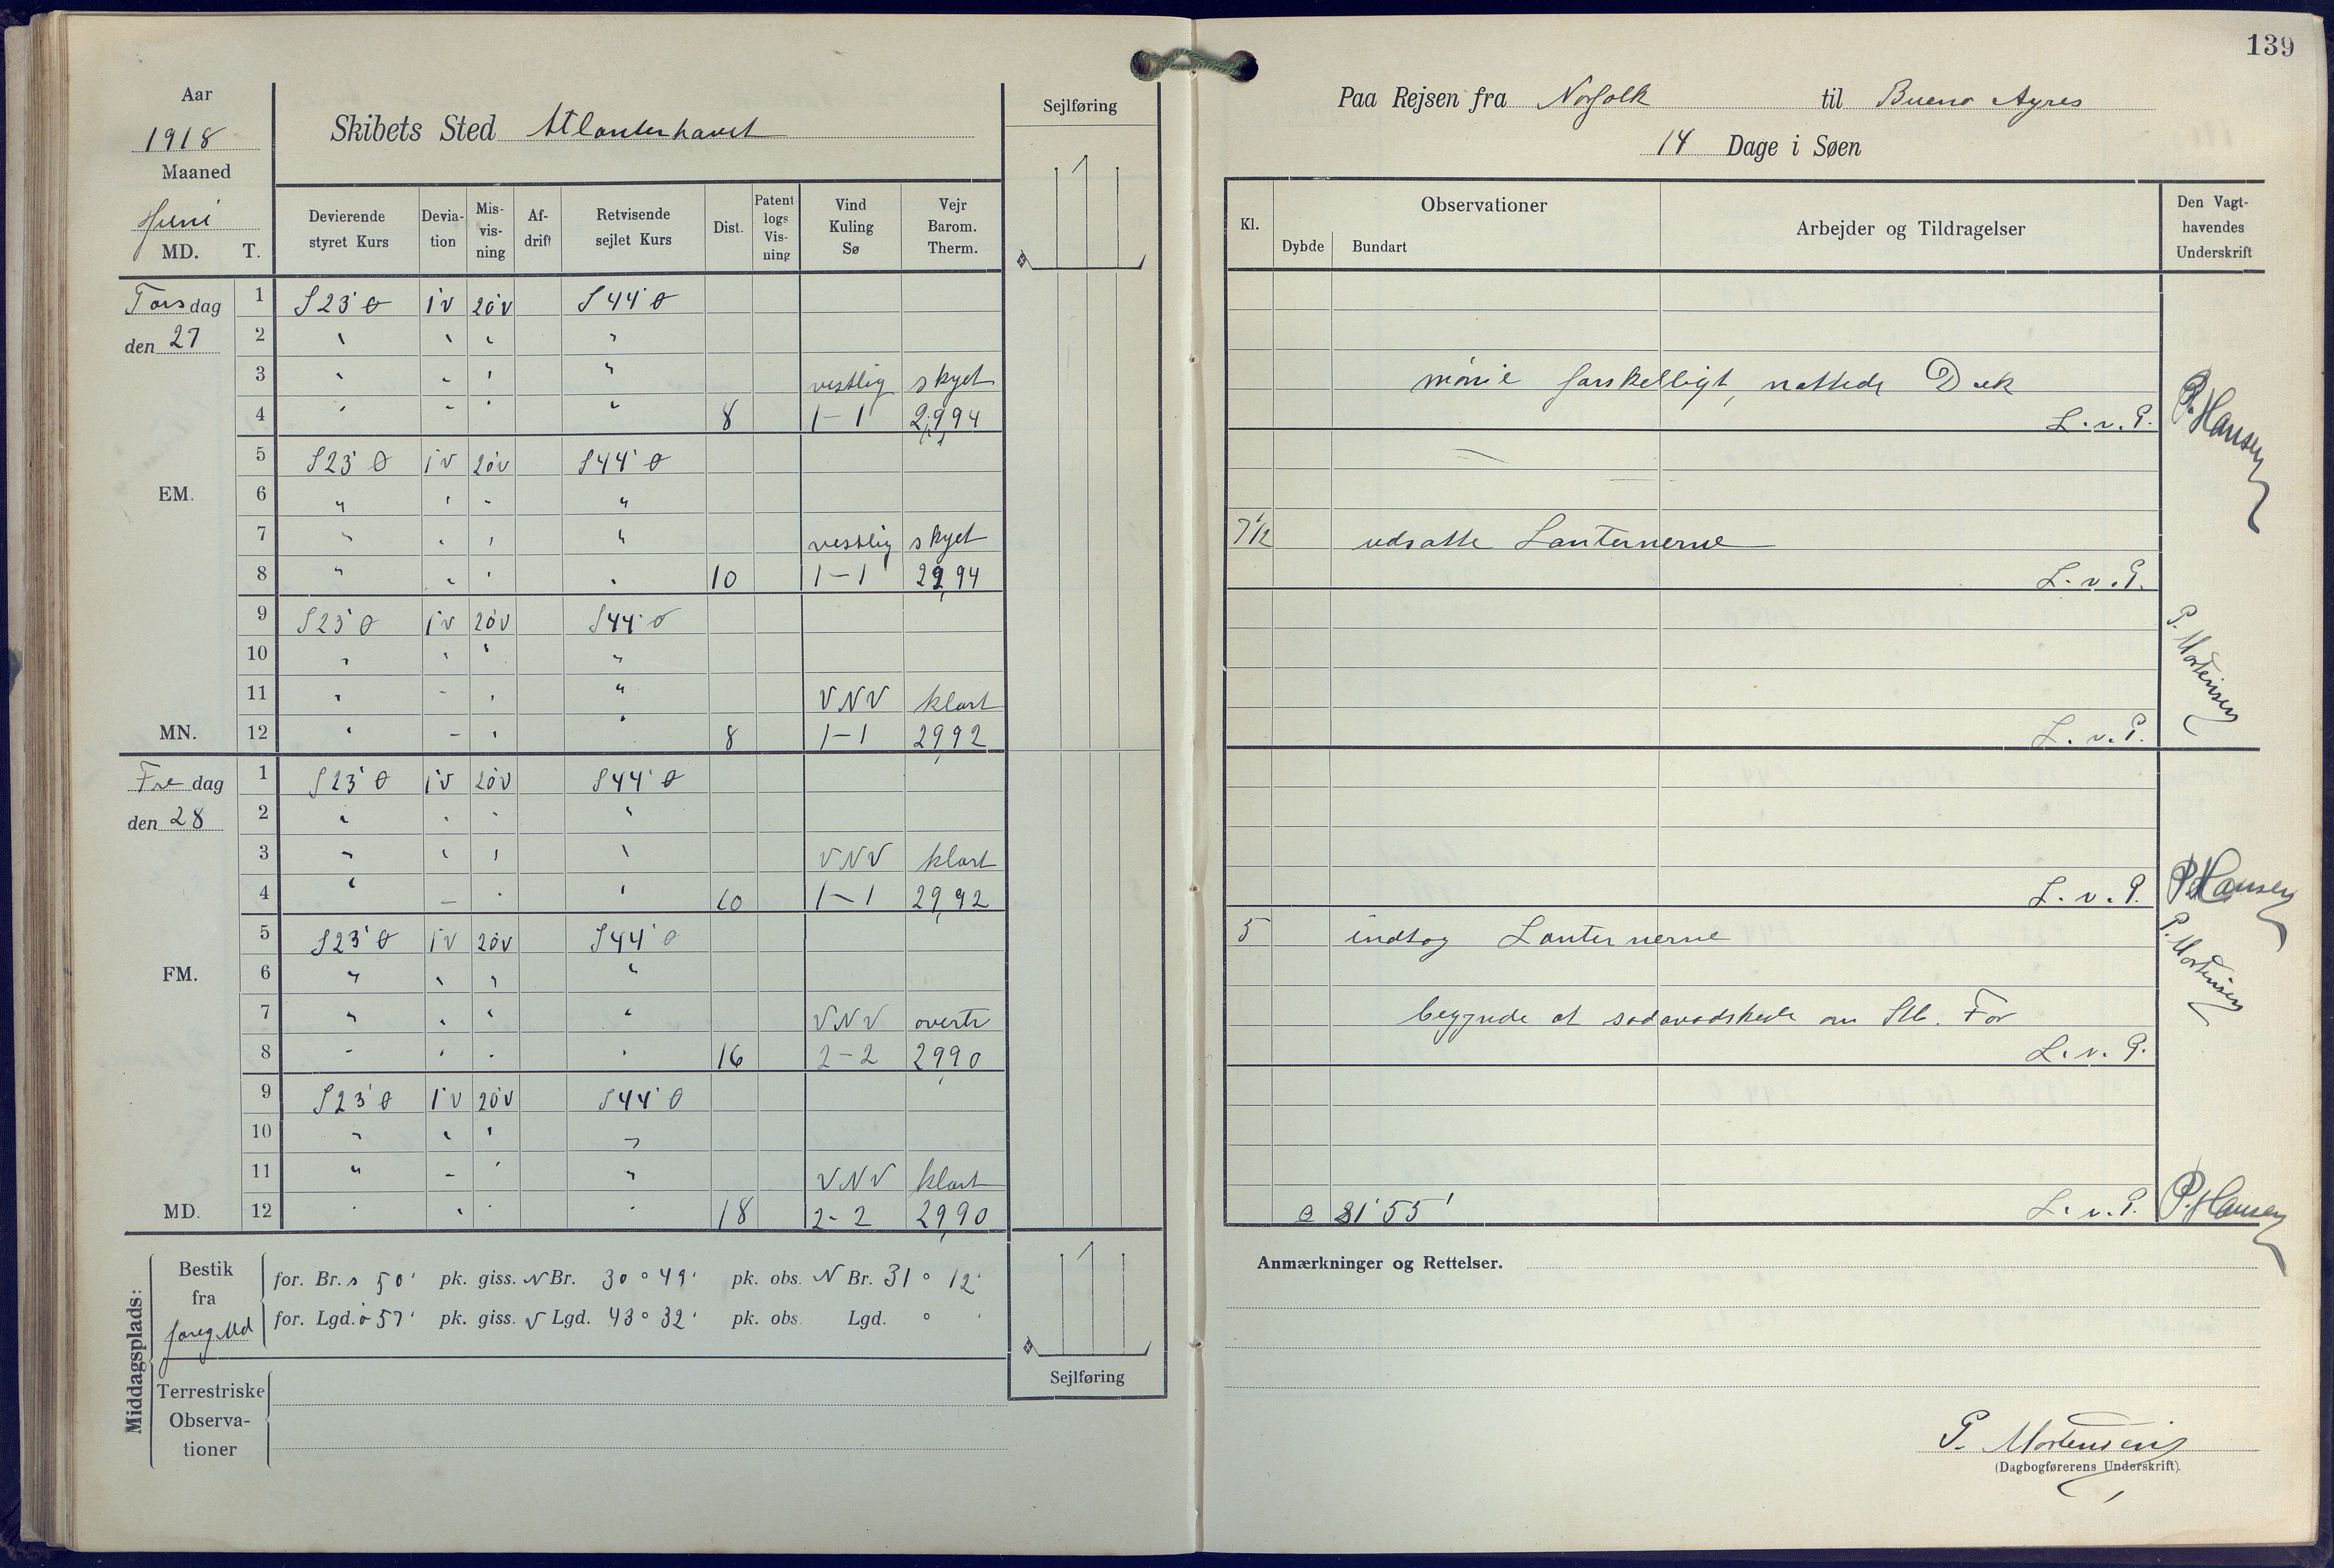 139
Aar
1918
Maaned
Juni
Skibets Sted Atlanterhavet
Sejlføring
MD. T.
Devierende styret Kurs
Devia-tion
Mis-vis-ning
Af-drift
Retvisende sejlet Kurs
Dist.
Patent logs Vis-ning
Vind Kuling Sø
Vejr Barom. Therm.
Torsdag 1 S23°Ø 1°V 20°V S44°Ø
den 27 2 " " " "
3 " " " " vestlig skyet
4 " " " " 8 1-1 29,94
5 S23°Ø 1°V 20°V S44°Ø
EM. 6 " " " "
7 " " " " vestlig skyet
8 " " " " 10 1-1 29,94
9 S23°Ø 1°V 20°V S44°Ø
10 " " " "
11 " " " " VNV klart
MN. 12 " " " " 8 1-1 29,92
Fredag 1 S23°Ø 1°V 20°V S44°Ø
den 28 2 " " " "
3 " " " " VNV klart
4 " " " " 10 1-1 29,92
5 S23°Ø 1°V 20°V S44°Ø
FM. 6 " " " "
7 " " " " VNV overtr
8 " " " " 16 2-2 29,90
9 S23°Ø 1°V 20°V S44°Ø
10 " " " "
11 " " " " VNV klart
MD. 12 " " " " 18 2-2 29,90
Middagsplads:
Bestik fra foreg Md
for. Br. s 50' pk. giss. N Br. 30° 49' pk. obs. N Br. 31° 12'
for. Lgd. ø 57' pk. giss. V Lgd. 43° 32' pk. obs. Lgd. ° '
Terrestriske
Observa-
tioner
Sejlføring
Paa Rejsen fra Norfolk til Bueno Ayres
14 Dage i Søen
Kl.
Observationer
Dybde Bundart
Arbejder og Tildragelser
Den Vagt-havendes Underskrift
mønie forskelligt, nattede Dæk
L. v. P. P. Hansen
7½ udsatte Lanternerne
L. v. P.
P. Mortensen
L. v. P.
L. v. P. P. Hansen
5 indtog Lanternerne
P. Mortensen
begynde at sodavadske om Stb. For
L. v. P.
31° 55' L. v. P. P. Hansen
Anmærkninger og Rettelser.
P. Mortensen
(Dagbogførerens Underskrift).